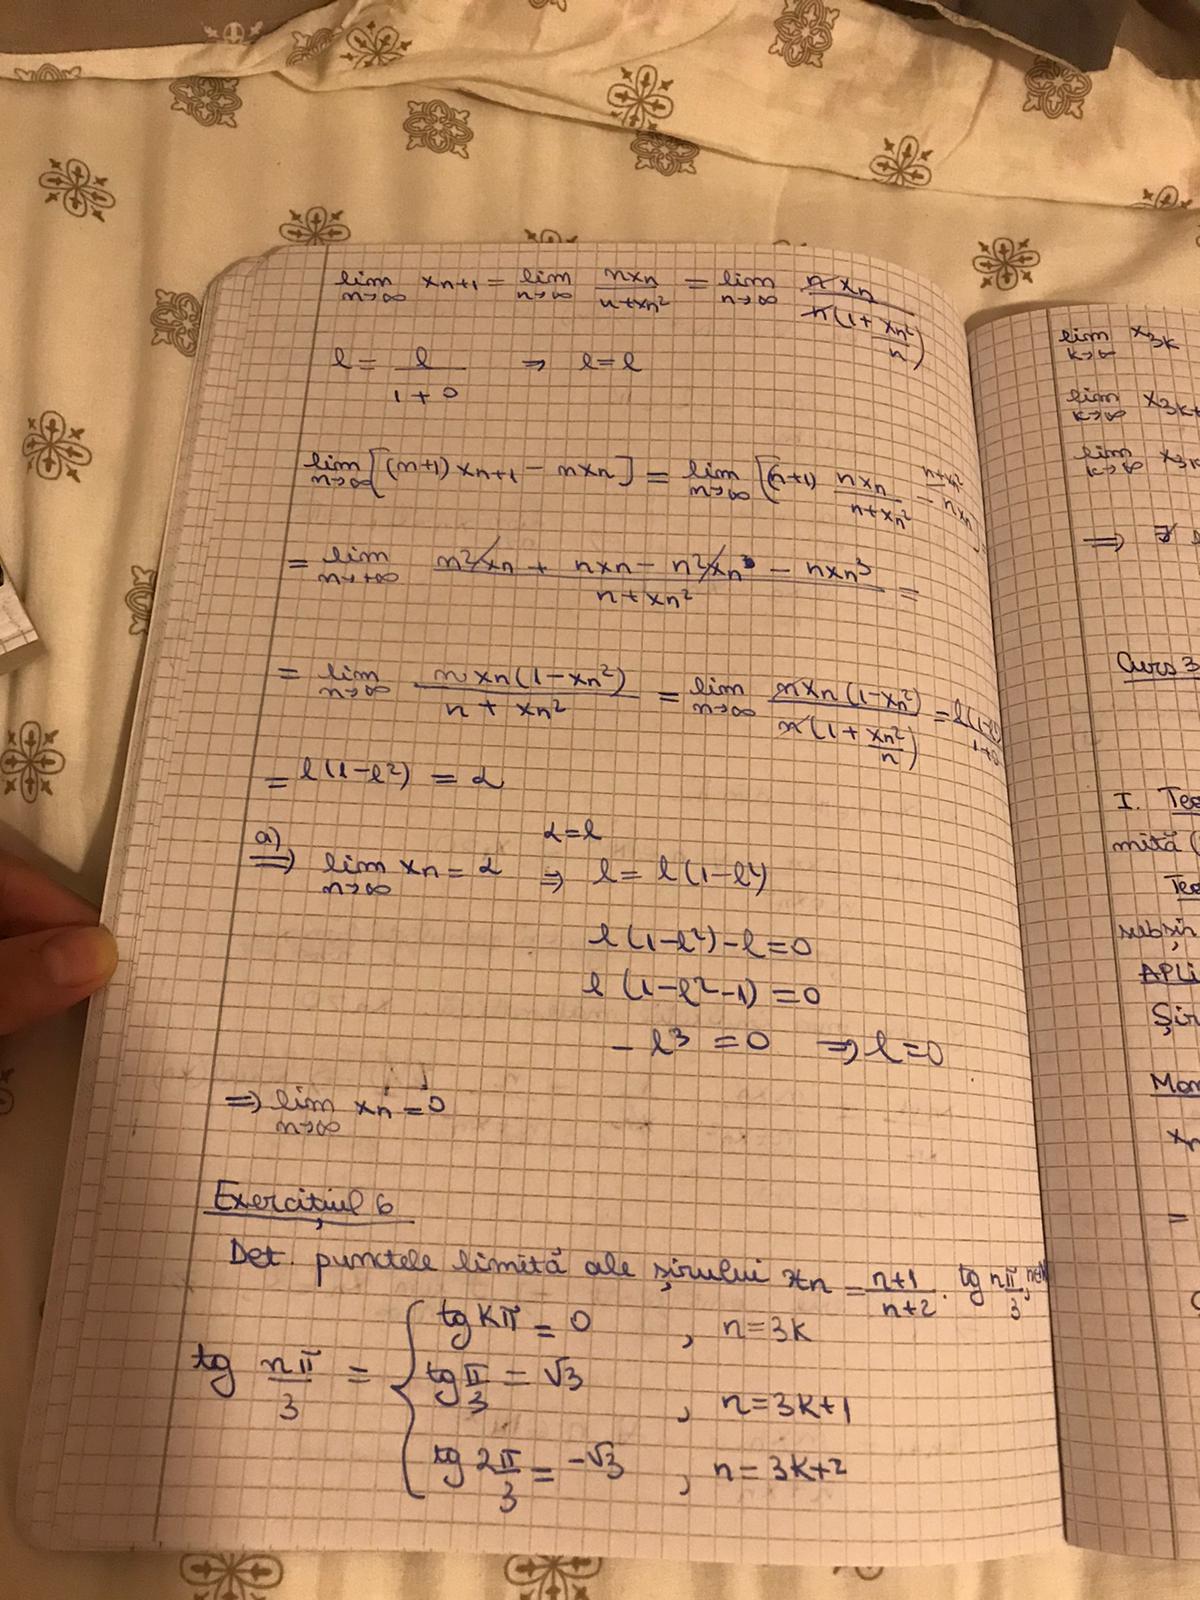 lim n→∞ xn+1 = lim n→∞ nxn / n+xn² = lim n→∞ n xn / n(1 + xn²/n)
l = l / 1+0 ⇒ l = l
lim n→∞ [(n+1) xn+1 − nxn] = lim n→∞ [(n+1) nxn / n+xn² − nxn
= lim n→∞ n²xn + nxn − n²xn − nxn³ / n+xn² =
= lim n→∞ nxn(1−xn²) / n + xn² = lim n→∞ nxn(1−xn²) / n(1 + xn²/n) = l(1−l²) / 1+0
= l(1−l²) = α
α = l
a) ⇒ lim n→∞ xn = α ⇒ l = l(1−l²)
l(1−l²)−l=0
l(1−l²−1)=0
− l³ = 0 ⇒ l=0
⇒ lim n→∞ xn = 0
Exercițiul 6
Det. punctele limită ale șirului xn = n+1 / n+2 · tg nπ/3, n∈N
tg nπ/3 = { tg kπ = 0 , n=3k
tg π/3 = √3 , n=3k+1
tg 2π/3 = −√3 , n=3k+2
lim k→∞ x3k
lim k→∞ x3k+
lim k→∞
⇒
Curs 3
I.
mită (
subșir
APLI
Șir
xn
=